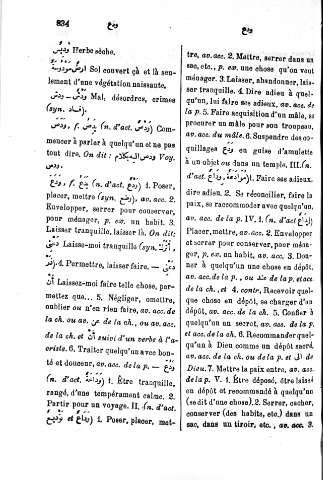 834
ودع
ودع
وَدِيسٌ Herbe sèche.
Sol couvert çà et là seu-
lement d'une végétation naissante.
Mal, désordres, crimes
(syn. فساد).
Com-
mencer à parler à quelqu'un et ne pas
tout dire. On dit : Voy.
1. Poser,
placer, mettre (syn. ), av. acc. 2.
Envelopper, serrer pour conserver,
pour ménager, p. ex. un habit. 3.
Laisser tranquille, laisser là. On dit:
Laisse-moi tranquille (syn.
4. Permettre, laisser faire. —
Laissez-moi faire telle chose, per-
mettez que... 5. Négliger, omettre,
oublier ou n'en rien faire, av. acc. de
la ch. ou av. عن de la ch., ou av. acc.
de la ch. et أن suivi d'un verbe à l'a-
oriste. 6. Traiter quelqu'un avec bon-
té et douceur, av. acc. de la p. — ودع
(n. d'act. ) 1. Être tranquille,
rangé, d'une tempérament calme. 2.
Partir pour un voyage. II. (n. d'act.
) 1. Poser, placer, met-
tre, av. acc. 2. Mettre, serrer dans un
sac, etc., p. ex. une chose qu'on veut
ménager. 3. Laisser, abandonner, lais-
ser tranquille. 4. Dire adieu à quel-
qu'un, lui faire ses adieux, av. acc. de
la p. 5. Faire acquisition d'un mâle, se
procurer un mâle pour son troupeau,
av. acc. du mâle. 6. Suspendre des co-
quillages en guise d'amulette
à un objet ou dans un temple. III. (n.
d'act. ) 1. Faire ses adieux,
dire adieu. 2. Se réconcilier, faire la
paix, se raccommoder avec quelqu'un,
av. acc. de la p. IV. 1. (n. d'act. )
Placer, mettre, av. acc. 2. Envelopper
et serrer pour conserver, pour ména-
ger, p. ex. un habit, av. acc. 3. Don-
ner à quelqu'un une chose en dépôt,
av. acc. de la p., ou de la p. et acc.
de la ch., et 4. contr. Recevoir quel-
que chose en dépôt, se charger d'un
dépôt, av. acc. de la ch. 5. Confier à
quelqu'un un secret, av. acc. de la p.
et acc. de la ch. 6. Recommander quel-
qu'un à Dieu comme un dépôt sacré,
av. acc. de la ch. ou de la p. et الى de
Dieu. 7. Mettre la paix entre, av. acc.
de la p. V. 1. Être déposé, être laissé
en dépôt et recommandé à quelqu'un
(se dit d'une chose). 2. Serrer, cacher,
conserver (des habits, etc.) dans un
sac, dans un tiroir, etc., av. acc. 3.